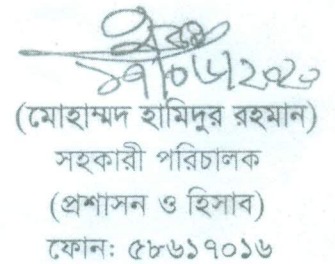 ১৭/০৮/২০২০
(মোহাম্মদ হামিদুর রহমান)
সহকারী পরিচালক
(প্রশাসন ও হিসাব)
ফোন: ৫৮৬১৭০১৬